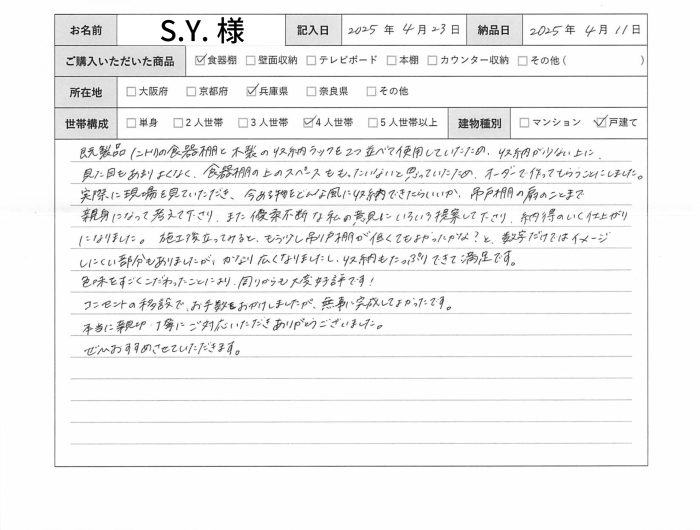 お名前 S.Y. 様 記入日 2025 年 4 月 23 日 納品日 2025 年 4 月 11 日
ご購入いただいた商品 ☑食器棚 □壁面収納 □テレビボード □本棚 □カウンター収納 □その他( )
所在地 □大阪府 □京都府 ☑兵庫県 □奈良県 □その他
世帯構成 □単身 □2人世帯 □3人世帯 ☑4人世帯 □5人世帯以上 建物種別 □マンション ☑戸建て
既製品(ニトリの食器棚と木製の収納ラックを2つ並べて使用していたため、収納が少ない上に、
見た目もあまりよくなく、食器棚の上のスペースももったいないと思っていたため、オーダーで作ってもらうことにしました。
実際に現場を見ていただき、今ある物をどんな風に収納できたらいいか、吊戸棚の扉のことまで
親身になって考えて下さり、また優柔不断な私の意見にいろいろ提案して下さり、納得のいく仕上がり
になりました。施工後立ってみると、もう少し吊戸棚が低くてもよかったかな?と、数字だけではイメージ
しにくい部分もありましたが、かなり広くなりましたし、収納もたっぷりできて満足です。
色味をすごくこだわったことにより、周りからも大変好評です!
コンセントの移設で、お手数をおかけしましたが、無事に完成してよかったです。
本当に親切、丁寧にご対応いただきありがとうございました。
ぜひおすすめさせていただきます。